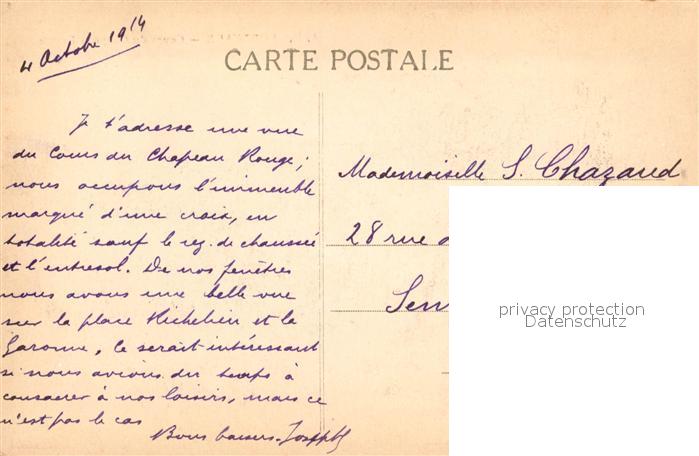 4 Octobre 1914
CARTE POSTALE
Je t'adresse une vue
du Cours du Chapeau Rouge;
nous occupons l'immeuble
marqué d'une croix, en
totalité sauf le rez de chaussée
et l'entresol. De nos fenêtres
nous avons une belle vue
sur la place Richelieu et la
Garonne, ce serait intéressant
si nous avions du temps à
consacrer à nos loisirs, mais ce
n'est pas le cas
Bons baisers. Joseph
Mademoiselle S. Chazaud
28 rue
Sen
privacy protection
Datenschutz